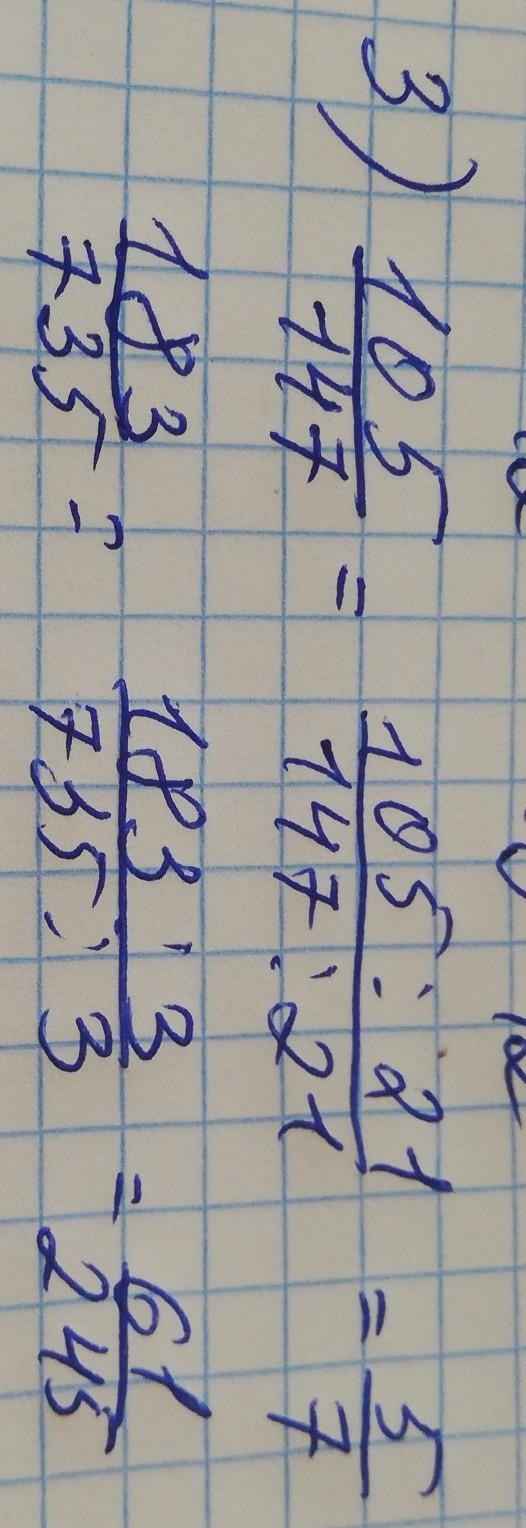 3) 105/147 = 105:21/147:21 = 5/7
183/735 = 183:3/735:3 = 61/245